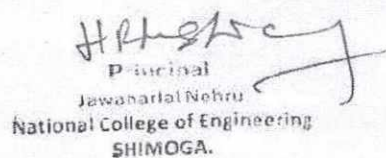 Principal
Jawaharlal Nehru
National College of Engineering
SHIMOGA.